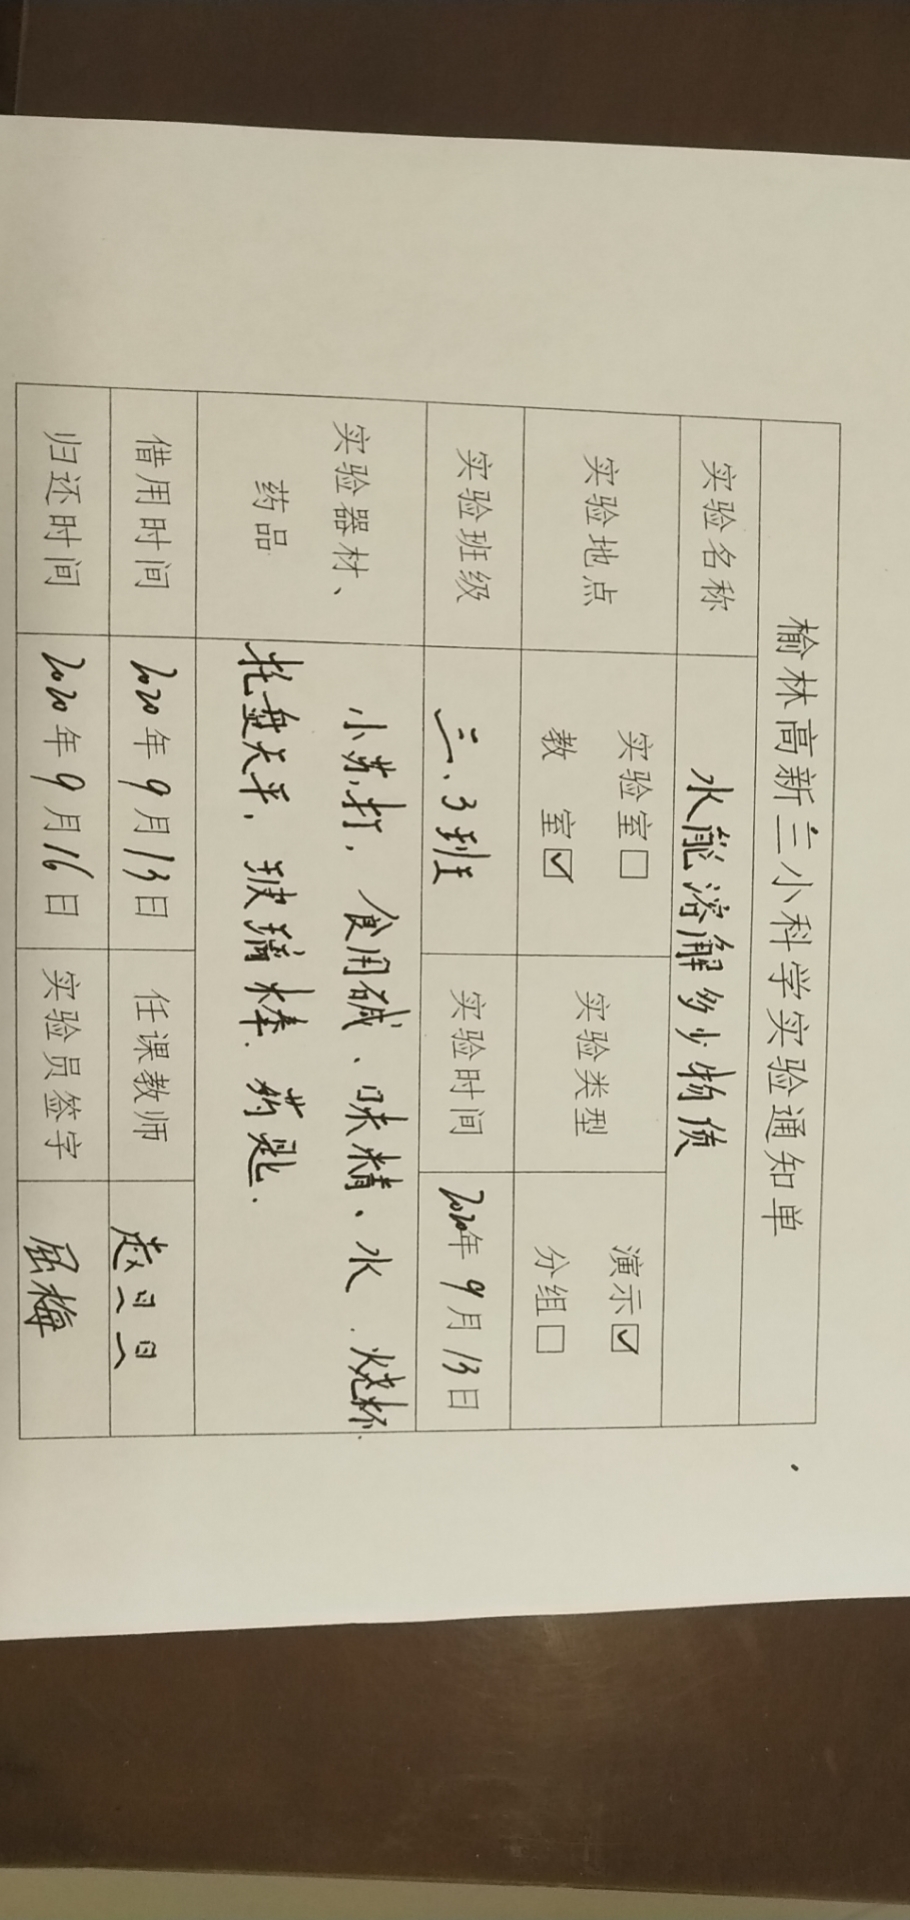 榆林高新三小科学实验通知单
实验名称 水能溶解多少物质
实验地点 实验室□ 教 室☑ 实验类型 演示☑ 分组□
实验班级 三、3班 实验时间 2020年9月13日
实验器材、药品 小苏打,食用碱、味精、水、烧杯.
托盘天平,玻璃棒、药匙.
借用时间 2020年9月13日 任课教师
归还时间 2020年9月16日 实验员签字 屈梅